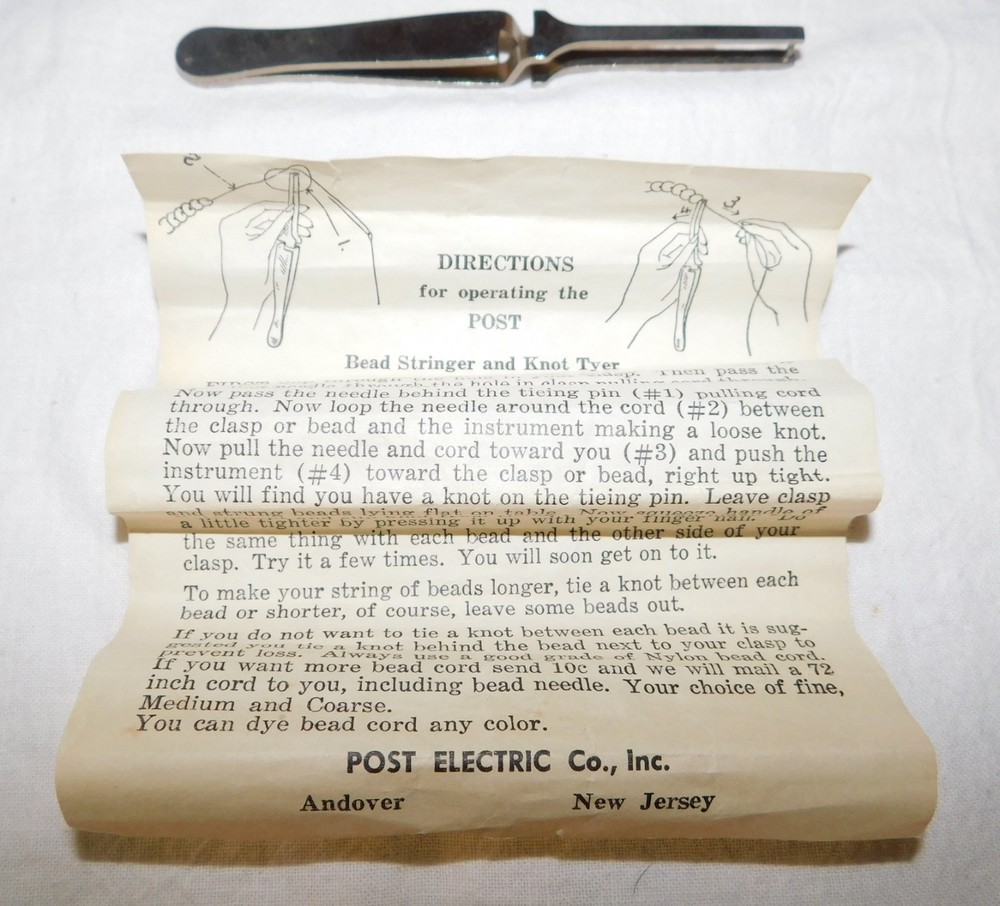 2
1.
3
4
DIRECTIONS
for operating the
POST
Bead Stringer and Knot Tyer
clasp. Then pass the
needle through the hole in clasp pulling cord through.
Now pass the needle behind the tieing pin (#1) pulling cord
through. Now loop the needle around the cord (#2) between
the clasp or bead and the instrument making a loose knot.
Now pull the needle and cord toward you (#3) and push the
instrument (#4) toward the clasp or bead, right up tight.
You will find you have a knot on the tieing pin. Leave clasp
and strung beads lying flat on table. Now squeeze handle of
a little tighter by pressing it up with your finger nail. Do
the same thing with each bead and the other side of your
clasp. Try it a few times. You will soon get on to it.
To make your string of beads longer, tie a knot between each
bead or shorter, of course, leave some beads out.
If you do not want to tie a knot between each bead it is sug-
gested you tie a knot behind the bead next to your clasp to
prevent loss. Always use a good grade of Nylon bead cord.
If you want more bead cord send 10c and we will mail a 72
inch cord to you, including bead needle. Your choice of fine,
Medium and Coarse.
You can dye bead cord any color.
POST ELECTRIC Co., Inc.
Andover New Jersey